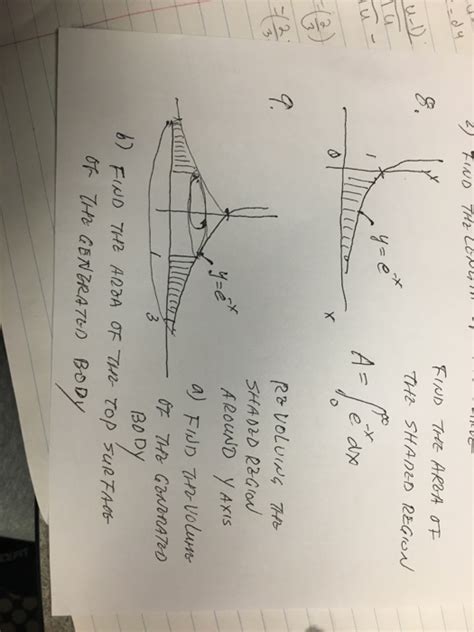 8.
FIND THE AREA OF
THE SHADED REGION
y
1
y=e^-x
0
x
A = ∫_0^∞ e^-x dx
9.
REVOLVING THE
SHADED REGION
AROUND Y AXIS
y=e^-x
1
3
a) FIND THE VOLUME
OF THE GENERATED
BODY
b) FIND THE AREA OF THE TOP SURFACE
OF THE GENERATED BODY